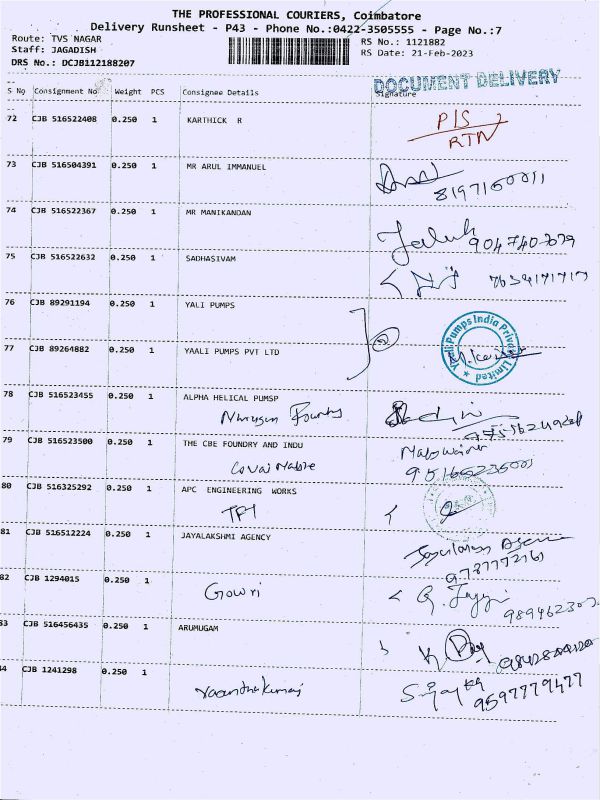 THE PROFESSIONAL COURIERS, Coimbatore
Delivery Runsheet - P43 - Phone No.:0422-3505555 - Page No.:7
Route: TVS NAGAR
RS No.: 1121882
Staff: JAGADISH
RS Date: 21-Feb-2023
DRS No.: DCJB112188207
DOCUMENT DELIVERY
S No Consignment No Weight PCS Consignee Details Signature
72 CJB 516522408 0.250 1 KARTHICK R
P/S
RTN
73 CJB 516504391 0.250 1 MR ARUL IMMANUEL
74 CJB 516522367 0.250 1 MR MANIKANDAN
75 CJB 516522632 0.250 1 SADHASIVAM
76 CJB 89291194 0.250 1 YALI PUMPS
77 CJB 89264882 0.250 1 YAALI PUMPS PVT LTD
Yaali Pumps India Private Limited
78 CJB 516523455 0.250 1 ALPHA HELICAL PUMSP
Foundry
79 CJB 516523500 0.250 1 THE CBE FOUNDRY AND INDU
Covai
80 CJB 516325292 0.250 1 APC ENGINEERING WORKS
81 CJB 516512224 0.250 1 JAYALAKSHMI AGENCY
82 CJB 1294015 0.250 1 Gowri
83 CJB 516456435 0.250 1 ARUMUGAM
4 CJB 1241298 0.250 1
9597779477